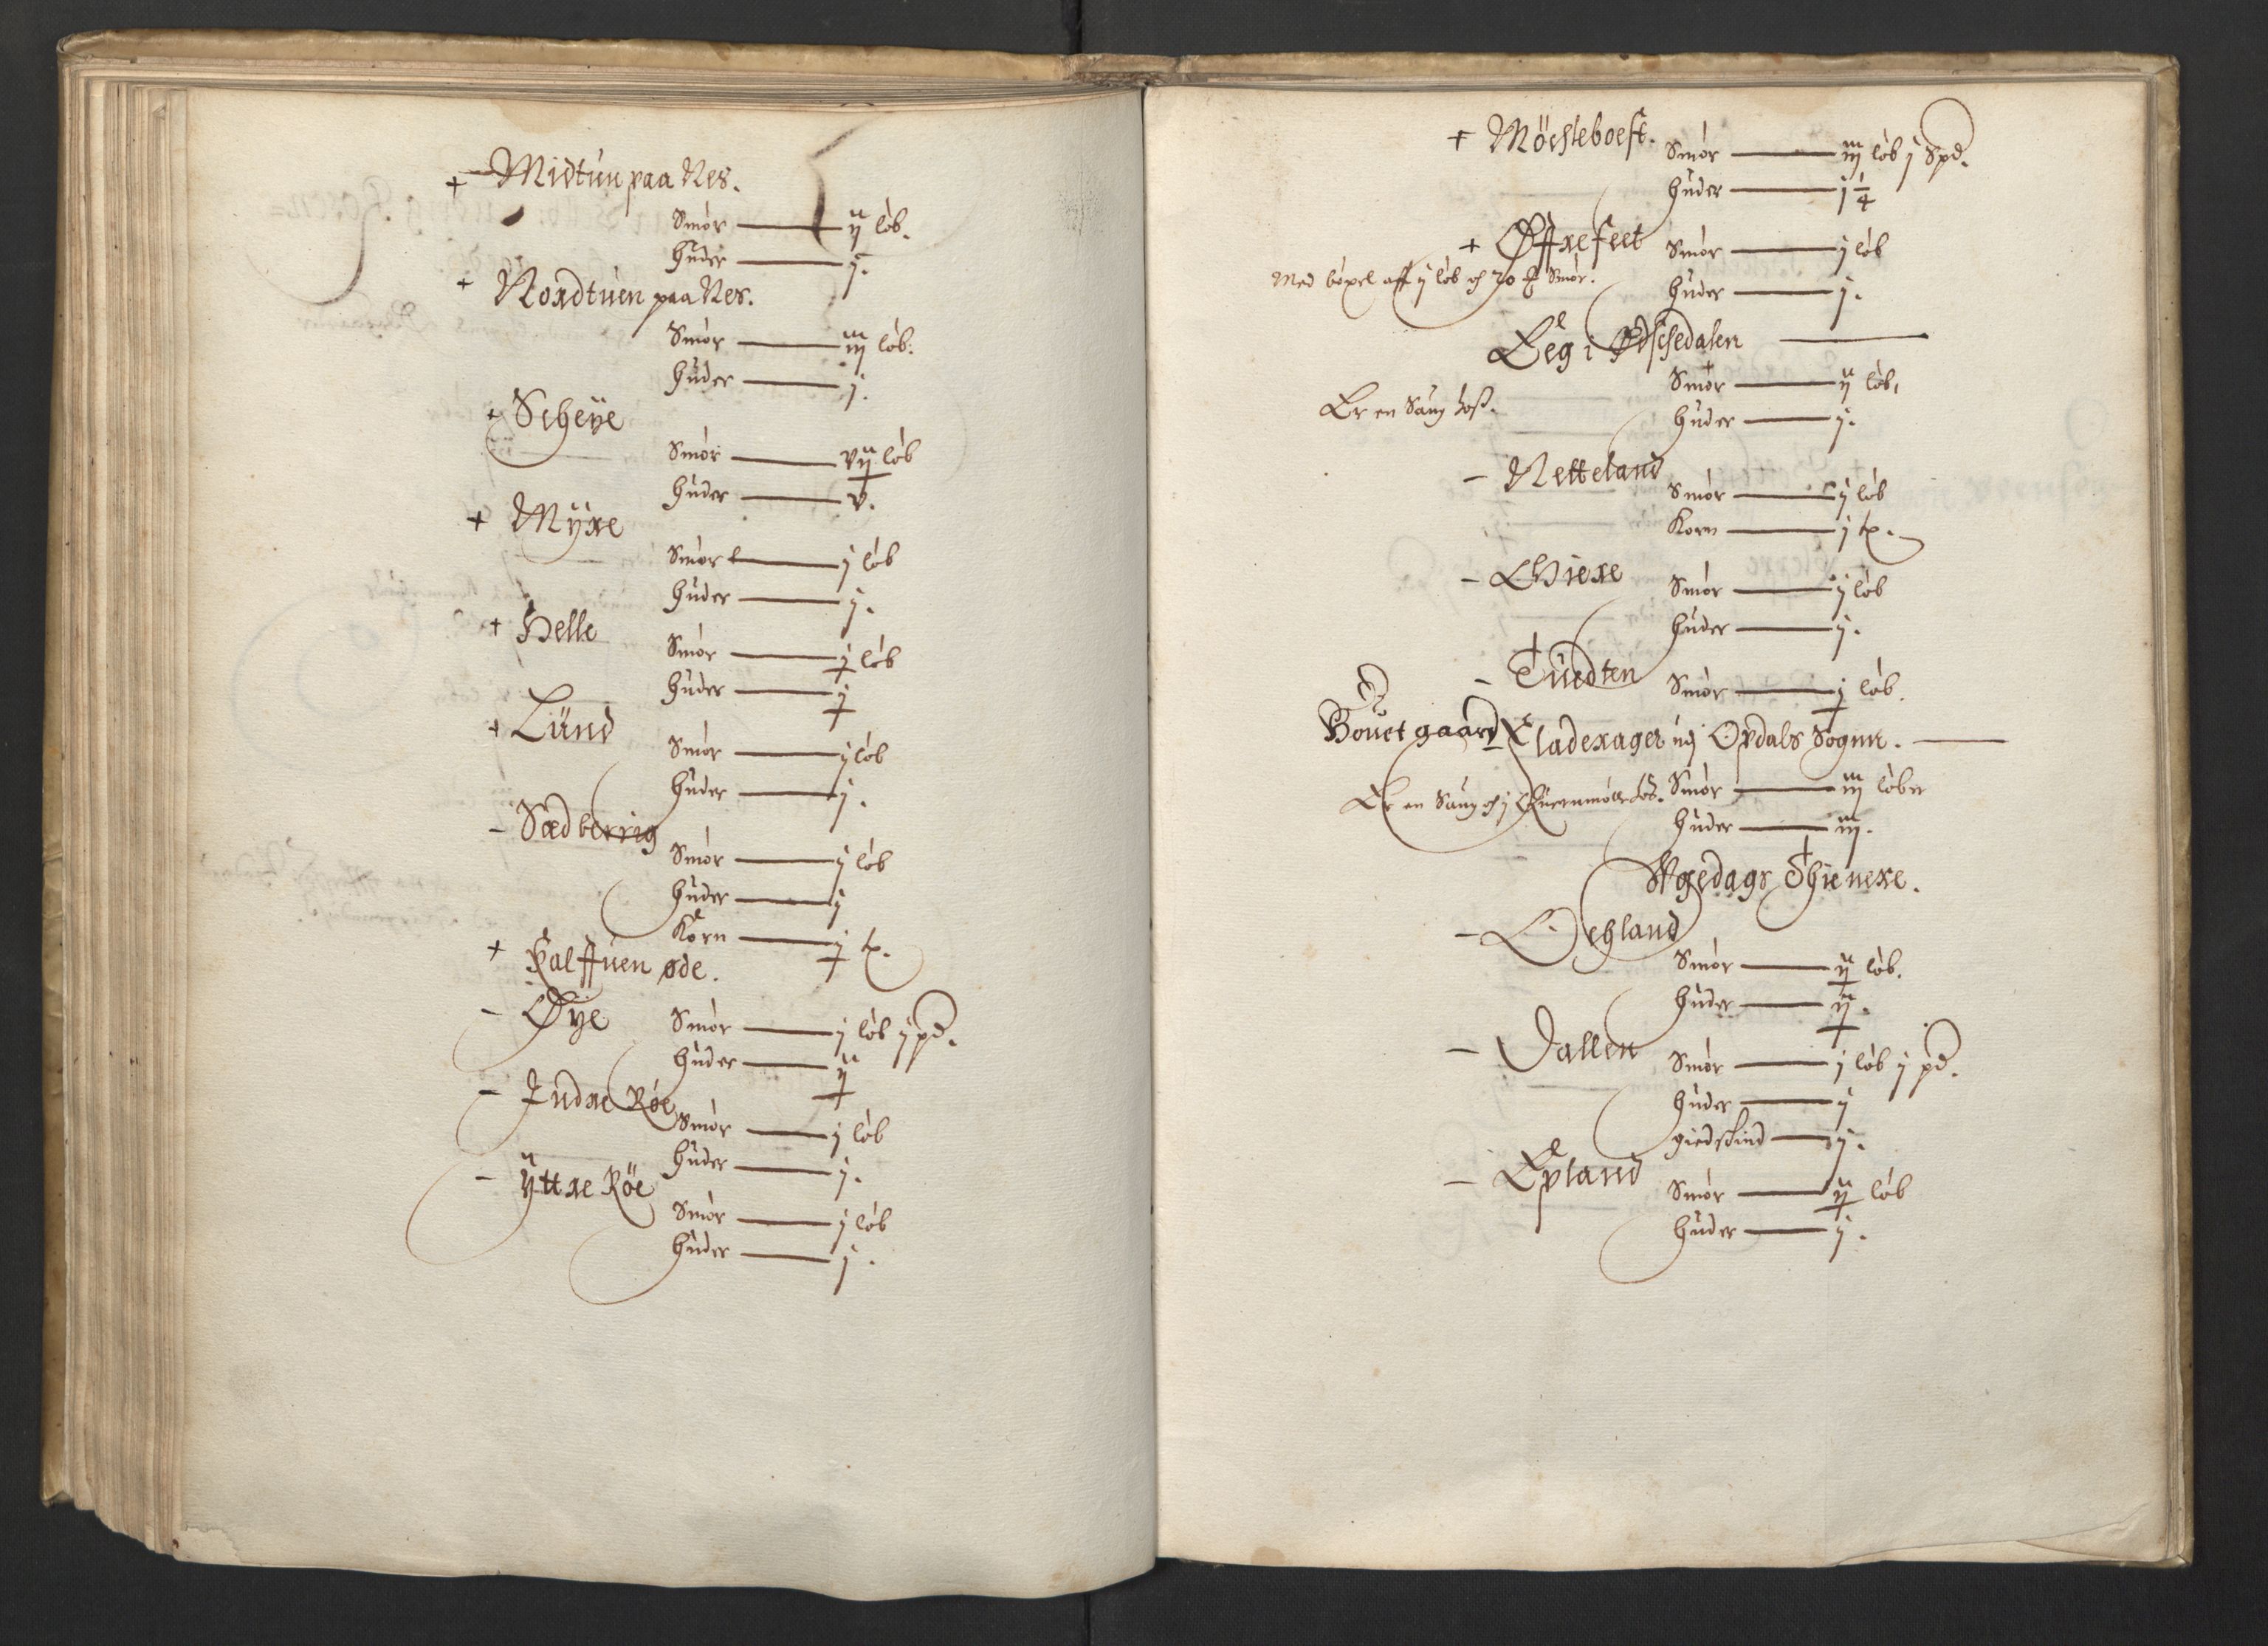 + Midtun paa Nes.
Smör — ij löb.
Huder — j.
+ Nordtuen paa Nes.
Smör — iij löb.
Huder — j.
+ Scheye
Smör — vij löb
Huder — v.
+ Myre
Smör — j löb
Huder — j.
+ Helle
Smör — j löb
Huder — j
+ Lünd
Smör — j löb
Huder — j.
- Sædberrig
Smör — j löb
Huder — j
Korn — j tp.
+ Kalffuen øde.
- Øye
Smör — j löb j pd.
Huder — ij
- Indre Röe
Smör — j löb
Huder — j.
- Yttre Röe
Smör — j löb
Huder — j.
+ Möchleboest.
Smör — iij löb j Spd.
Huder — j 1/4
+ Øffrefeet
Smör — j löb
Med böxel aff j löb och 20 Smör.
Huder — j.
Eeg i
Smör — ij löb,
Er en Saug hoss.
Huder — j.
- Netteland
Smör — j löb
Korn — j tp.
- Giere
Smör — j löb
Huder — j.
- Tüedten
Smör — j löb.
Bouet gaard Eladerager udj Opdals Sognn.
Er en Saug och j Quernmölle hos. Smör — iij löber
Huder — iij.
Vgedags Thienere.
- Oehland
Smör — ij löb.
Huder — ij.
- Dallen
Smör — j löb j pd.
Huder — j
giedskind — j.
- Epland
Smör — ij löb
Huder — j.